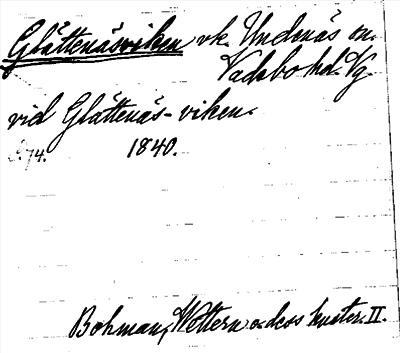 Glättenäsviken vk. Undenäs sn.
Vadsbo hd. Vg.
vid Glättenäs-viken.
s. 74. 1840.
Bohman, Wettern o. dess kuster. II.